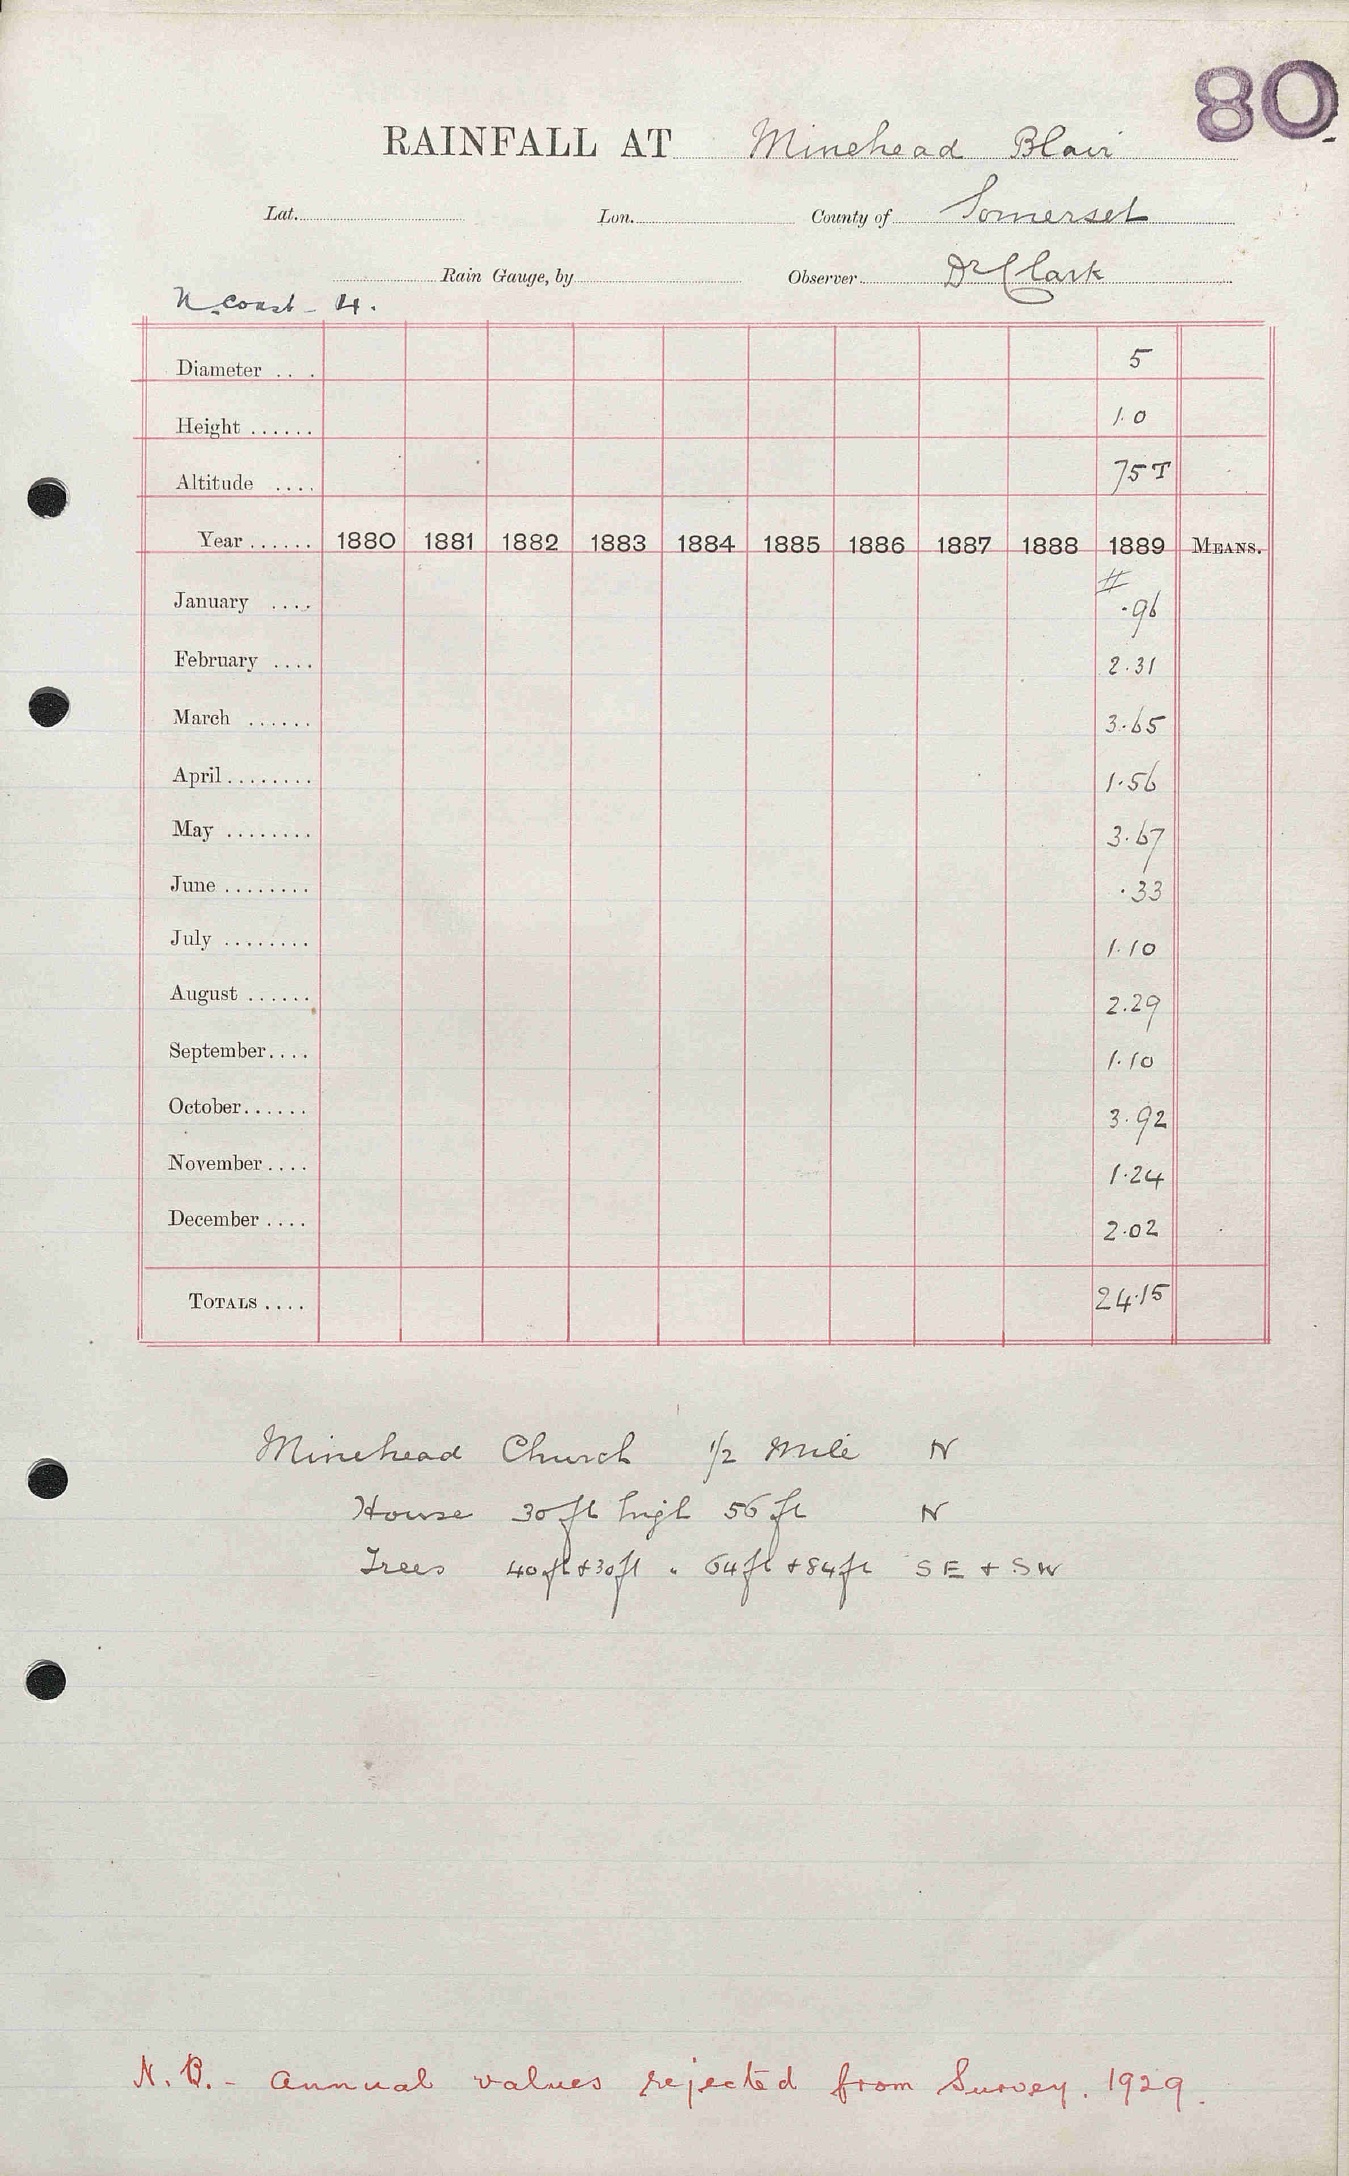 80.
RAINFALL AT Minehead Blair
Lat. Lon. County of Somerset
Rain Gauge, by Observer Dr Clark
N. Coast - 4.
Diameter ... 5
Height ...... 1.0
Altitude .... 75 T
Year ...... 1880 1881 1882 1883 1884 1885 1886 1887 1888 1889 MEANS.
#
January .... .96
February .... 2.31
March ...... 3.65
April ........ 1.56
May ........ 3.67
June ........ .33
July ........ 1.10
August ...... 2.29
September .... 1.10
October ...... 3.92
November .... 1.24
December .... 2.02
TOTALS .... 24.15
Minehead Church 1/2 Mile N
House 30 ft high 56 ft N
Trees 40 ft + 30 ft " 64 ft + 84 ft SE + SW
N.B. - Annual values rejected from Survey. 1929.